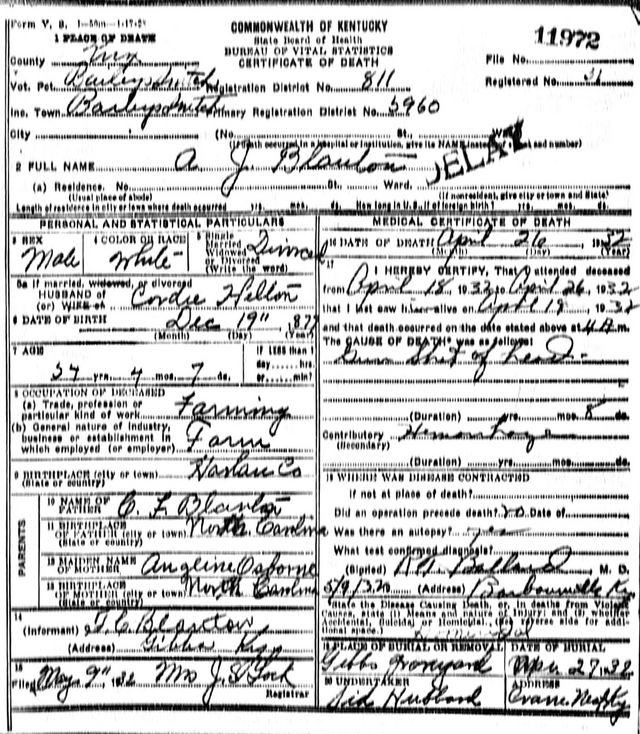 Form V. S. 1-50m-1-17-2
COMMONWEALTH OF KENTUCKY
State Board of Health
BUREAU OF VITAL STATISTICS
CERTIFICATE OF DEATH
11972
1 PLACE OF DEATH
County Knox
File No.
Vot. Pct. Baileys Switch Registration District No. 811
Registered No. 31
Inc. Town Baileys Switch Primary Registration District No. 5960
City (No. St., Ward)
(If death occurred in a hospital or institution, give its NAME instead of street and number)
DELAY
2 FULL NAME A J Blanton
(a) Residence. No. St. Ward.
(Usual place of abode) (If nonresident, give city or town and State)
Length of residence in city or town where death occurred yrs. mos. ds. How long in U. S., if of foreign birth? yrs. mos. ds.
PERSONAL AND STATISTICAL PARTICULARS
3 SEX Male
4 COLOR OR RACE White
5 Single Married Widowed or Divorced (Write the word) Divorced
5a If married, widowed, or divorced
HUSBAND of
(or) WIFE of Cordie Hilton
6 DATE OF BIRTH Dec 19" 877
(Month) (Day) (Year)
7 AGE
54 yrs. 4 mos. 7 ds.
If LESS than 1 day, hrs. or min?
8 OCCUPATION OF DECEASED
(a) Trade, profession or particular kind of work Farming
(b) General nature of industry, business or establishment in which employed (or employer) Farm
9 BIRTHPLACE (city or town) Harlan Co
(State or country)
PARENTS
10 NAME OF FATHER C. F. Blanton
11 BIRTHPLACE OF FATHER (city or town) North Carolina
(State or country)
12 MAIDEN NAME OF MOTHER Angeline Osborne
13 BIRTHPLACE OF MOTHER (city or town) North Carolina
(State or country)
14
(Informant) Blanton
(Address) Gibbs Ky
15
Filed May 9" 1932 Mrs J. S.
Registrar
MEDICAL CERTIFICATE OF DEATH
16 DATE OF DEATH April 26 1932
(Month) (Day) (Year)
17
I HEREBY CERTIFY, That I attended deceased
from April 18 1932 to April 26, 1932
that I last saw him alive on April 19 1932
and that death occurred on the date stated above at 4 A m.
The CAUSE OF DEATH* was as follows:
Gun Shot of head
(Duration) yrs. mos. 8 ds.
Contributory Hemorrhage
(Secondary)
(Duration) yrs. mos. ds.
18 WHERE WAS DISEASE CONTRACTED
If not at place of death?
Did an operation precede death? no Date of
Was there an autopsy? yes
What test confirmed diagnosis?
(Signed) M. D.
5/9/32 (Address) Barbourville Ky
*State the Disease Causing Death, or, in deaths from Violent Causes, state (1) Means and nature of Injury and (2) whether Accidental, Suicidal, or Homicidal. (See reverse side for additional space.)
19 PLACE OF BURIAL OR REMOVAL Gibbs Graveyard
DATE OF BURIAL Apr. 27, 32
20 UNDERTAKER Sid Hubbard
ADDRESS